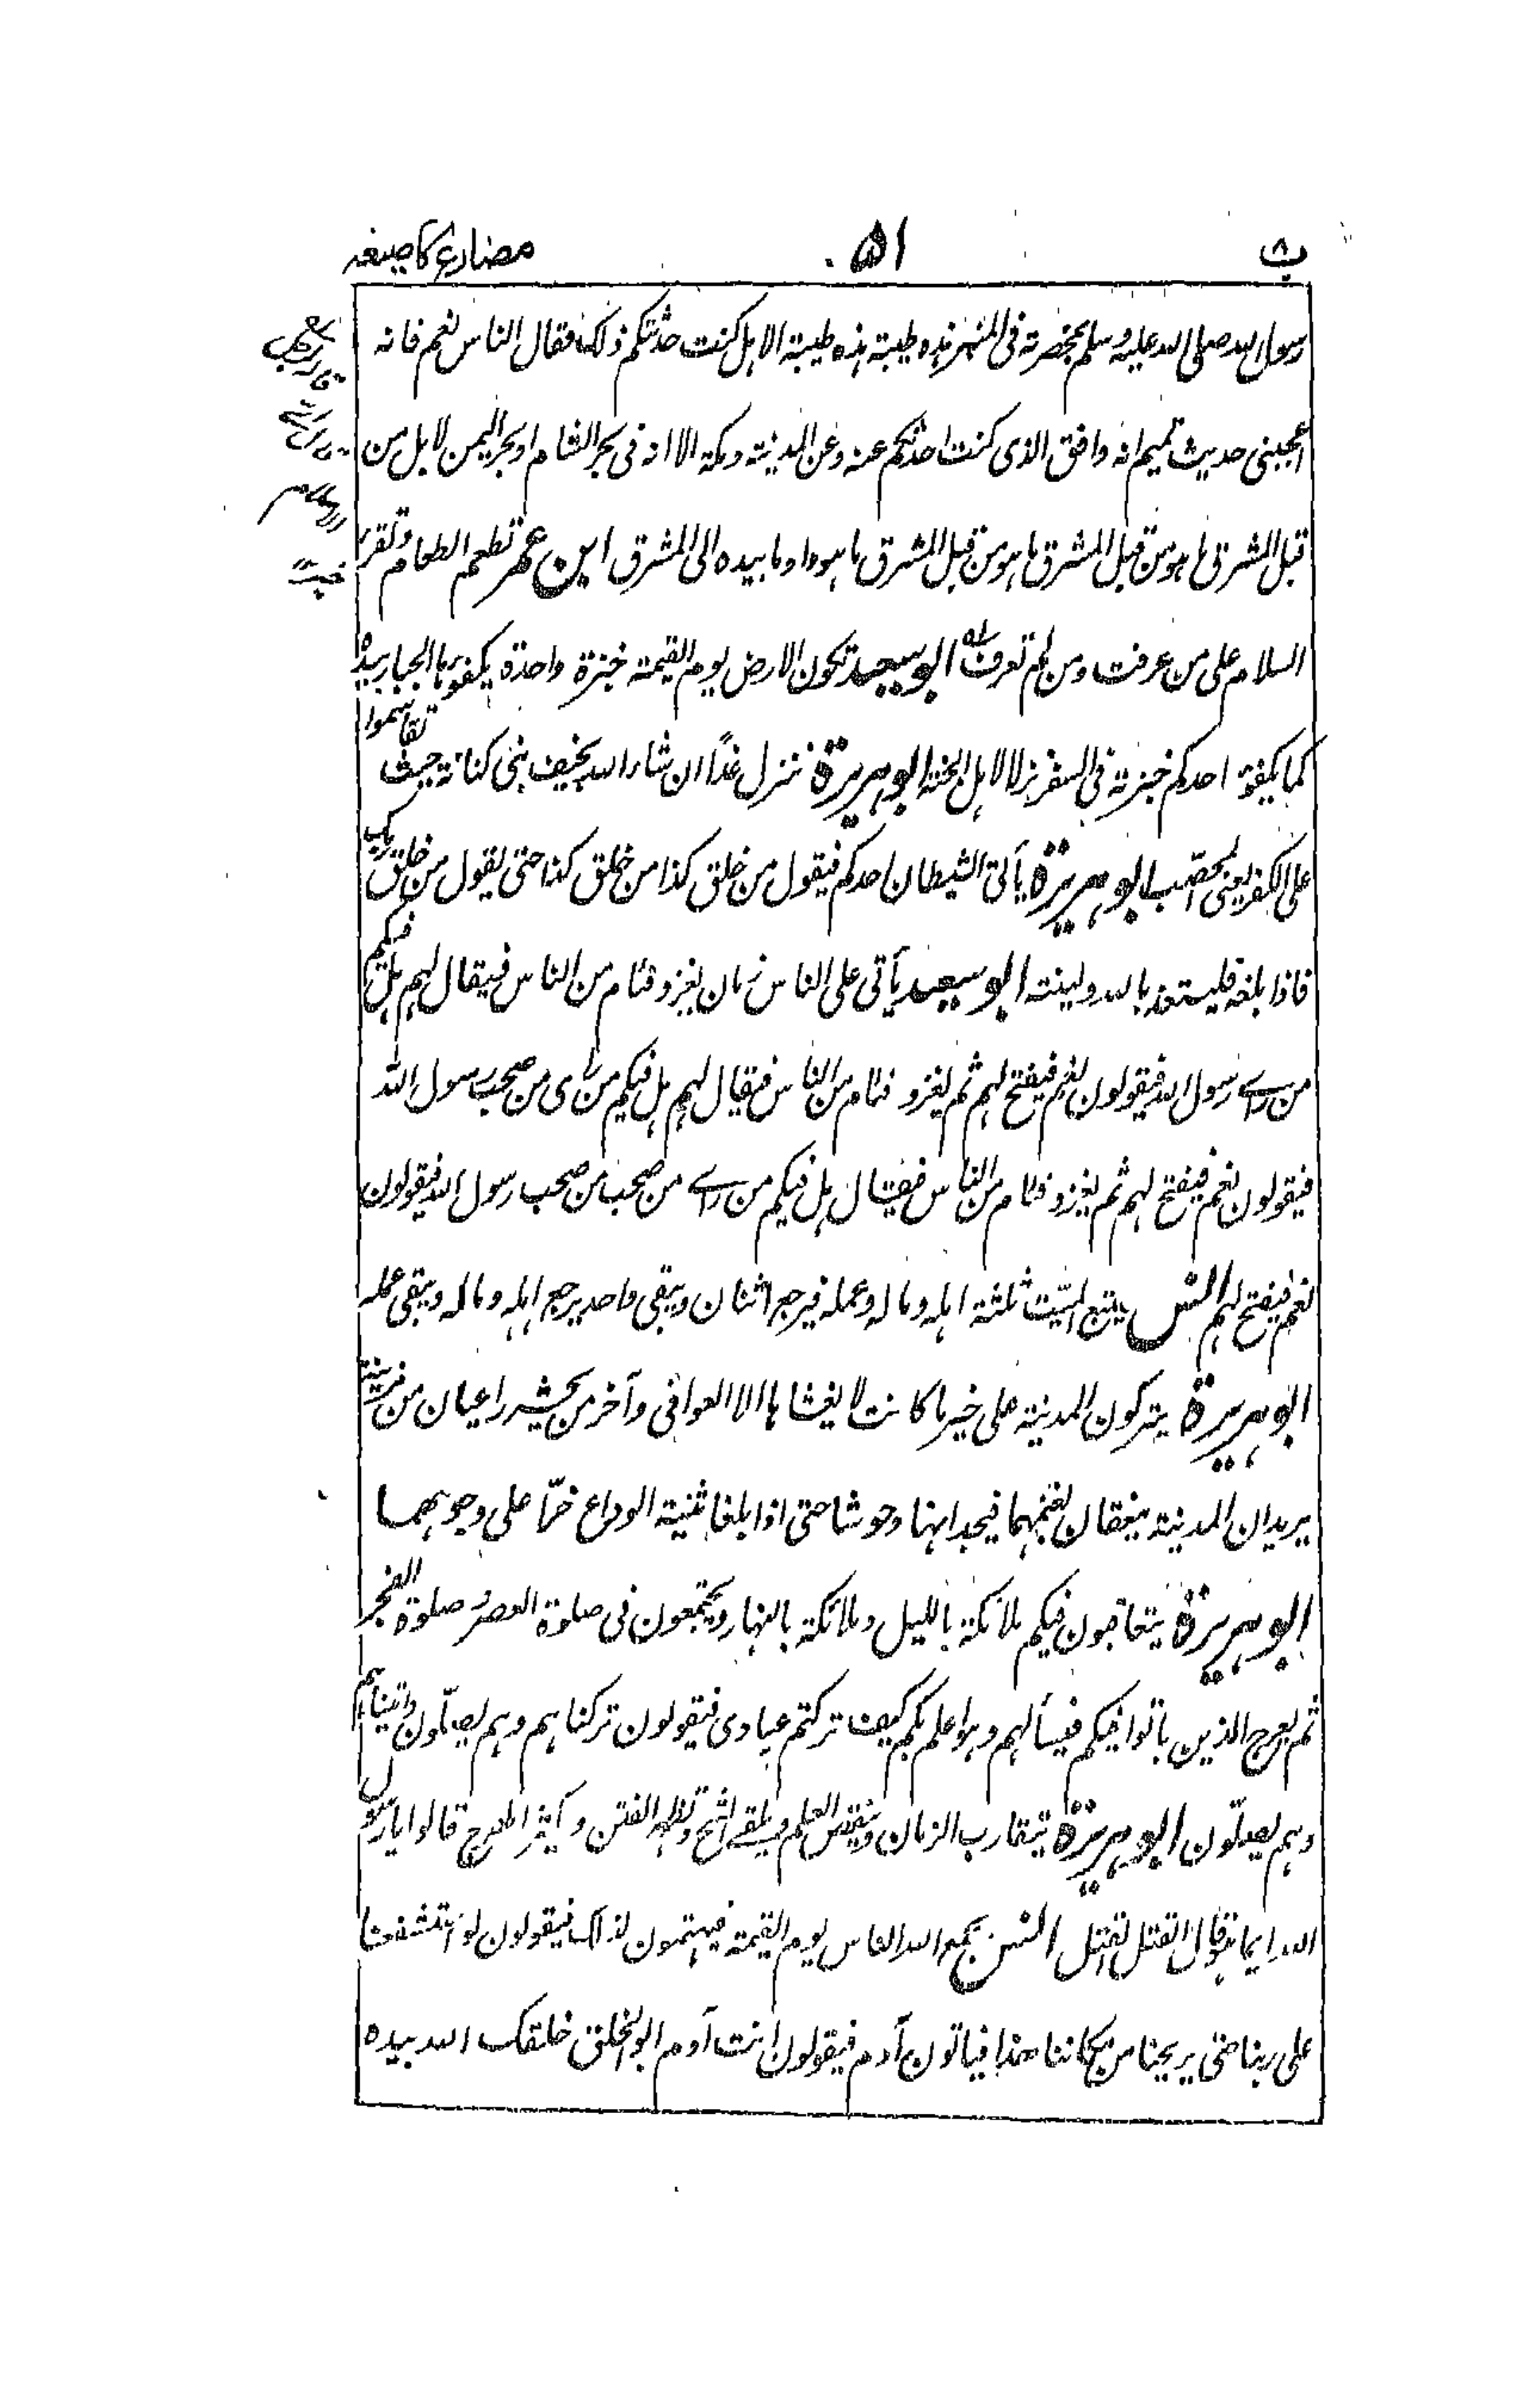 ب ۸ ۵۱ مضارع کا صیغہ
رسول الله صلی الله علیه وسلم بمخصرته فی المنبر هذه طیبة هذه طیبة الا هل کنت حدثتکم ذلک فقال الناس نعم فانه
اعجبنی حدیث تمیم انه وافق الذی کنت احدثکم عنه وعن المدینة ومکة الا انه فی بحر الشام او بحر الیمن لا بل من
قبل المشرق ما هو من قبل المشرق ما هو من قبل المشرق ما هو واومأ بیده الی المشرق ابن عمر تطعم الطعام وتقرئ
السلام علی من عرفت ومن لم تعرف ابو سعید تکون الارض یوم القیمة خبزة واحدة یکفؤها الجبار بیده
کما یکفؤ احدکم خبزته فی السفر نزلا لاهل الجنة ابو هریرة ننزل غدًا ان شاء الله بخیف بنی کنانة حیث تقاسموا
علی الکفر یعنی المحصّب ابو هریرة یأتی الشیطان احدکم فیقول من خلق کذا من خلق کذا حتی یقول من خلق ربک
فاذا بلغه فلیستعذ بالله ولینته ابو سعید یأتی علی الناس زمان یغزو فئام من الناس فیقال لهم هل فیکم
من رای رسول الله فیقولون نعم فیفتح لهم ثم یغزو فئام من الناس فیقال لهم هل فیکم من رای من صحب رسول الله
فیقولون نعم فیفتح لهم ثم یغزو فئام من الناس فیقال هل فیکم من رای من صحب من صحب رسول الله فیقولون
نعم فیفتح لهم انس یتبع المیّت ثلثة اهله وماله وعمله فیرجع اثنان ویبقی واحد یرجع اهله وماله ویبقی عمله
ابو هریرة یترکون المدینة علی خیر ما کانت لا یغشاها الا العوافی وآخر من یحشر راعیان من مزینة
یریدان المدینة ینعقان بغنمهما فیجدانها وحوشا حتی اذا بلغا ثنیة الوداع خرّا علی وجوههما
ابو هریرة یتعاقبون فیکم ملائکة باللیل وملائکة بالنهار ویجتمعون فی صلوة العصر و صلوة الفجر
ثم یعرج الذین باتوا فیکم فیسألهم وهو اعلم بکم کیف ترکتم عبادی فیقولون ترکناهم وهم یصلّون واتیناهم
وهم یصلّون ابو هریرة یتقارب الزمان وینقص العلم ویلقی الشح وتظهر الفتن ویکثر الهرج قالوا یا رسول
الله ایما هو قال القتل القتل انس یجمع الله الناس یوم القیمة فیهتمون لذلک فیقولون لو استشفعنا
علی ربنا حتی یریحنا من مکاننا هذا فیاتون آدم فیقولون انت آدم ابو الخلق خلقک الله بیده